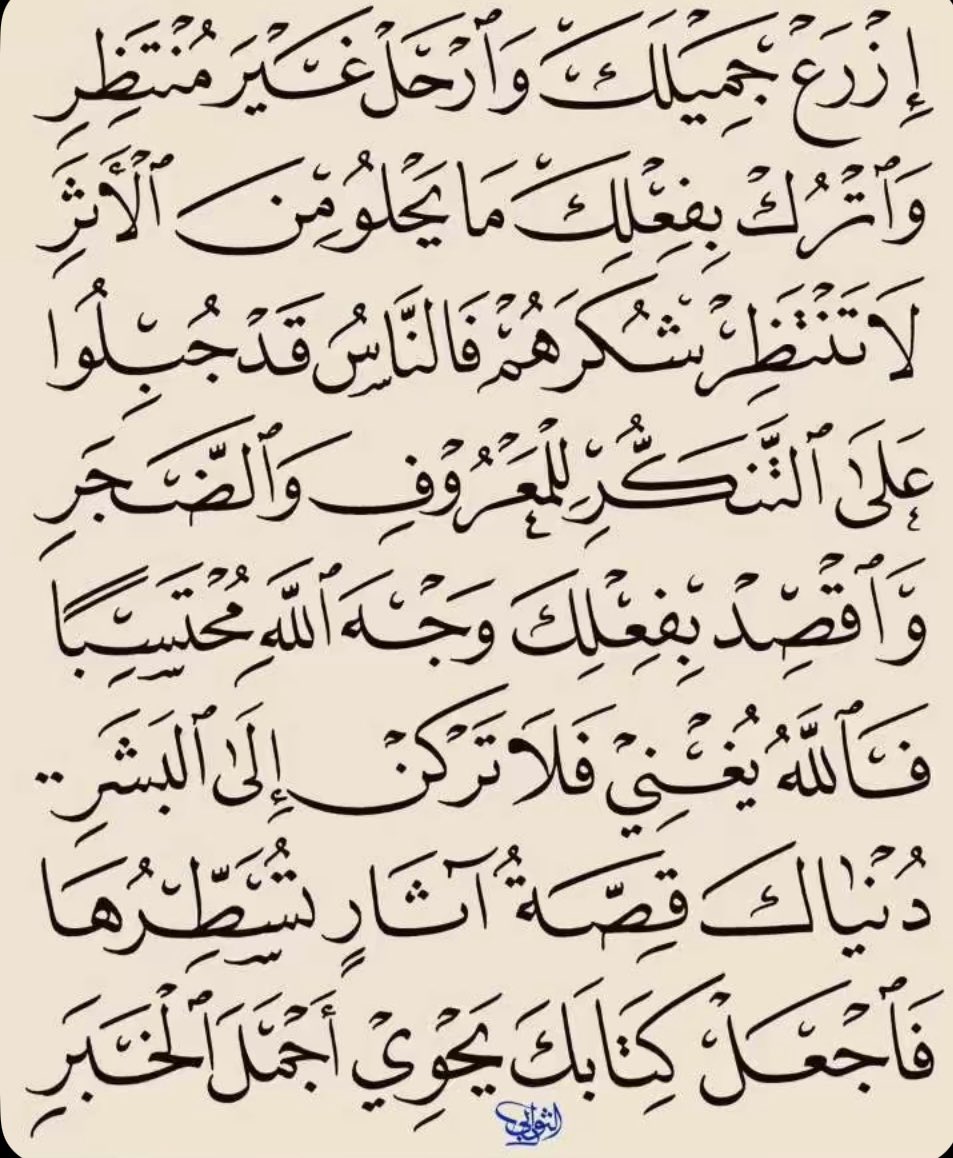 إِزْرَعْ جَمِيلَكَ وَٱرْحَلْ غَيْرَ مُنْتَظِرِ
وَٱتْرُكْ بِفِعْلِكَ مَا يَحْلُو مِنَ ٱلْأَثَرِ
لَا تَنْتَظِرْ شُكْرَهُمْ فَالنَّاسُ قَدْ جُبِلُوا
عَلَىٰ ٱلتَّنَكُّرِ لِلْمَعْرُوفِ وَٱلضَّجَرِ
وَٱقْصِدْ بِفِعْلِكَ وَجْهَ ٱللَّهِ مُحْتَسِبًا
فَٱللَّهُ يُغْنِيْ فَلَا تَرْكَنْ إِلَىٰ ٱلبَشَرِ..
دُنْيَاكَ قِصَّةُ آثَارٍ تُسَطِّرُهَا
فَٱجْعَلْ كِتَابَكَ يَحْوِيْ أَجْمَلَ ٱلْخَبَرِ